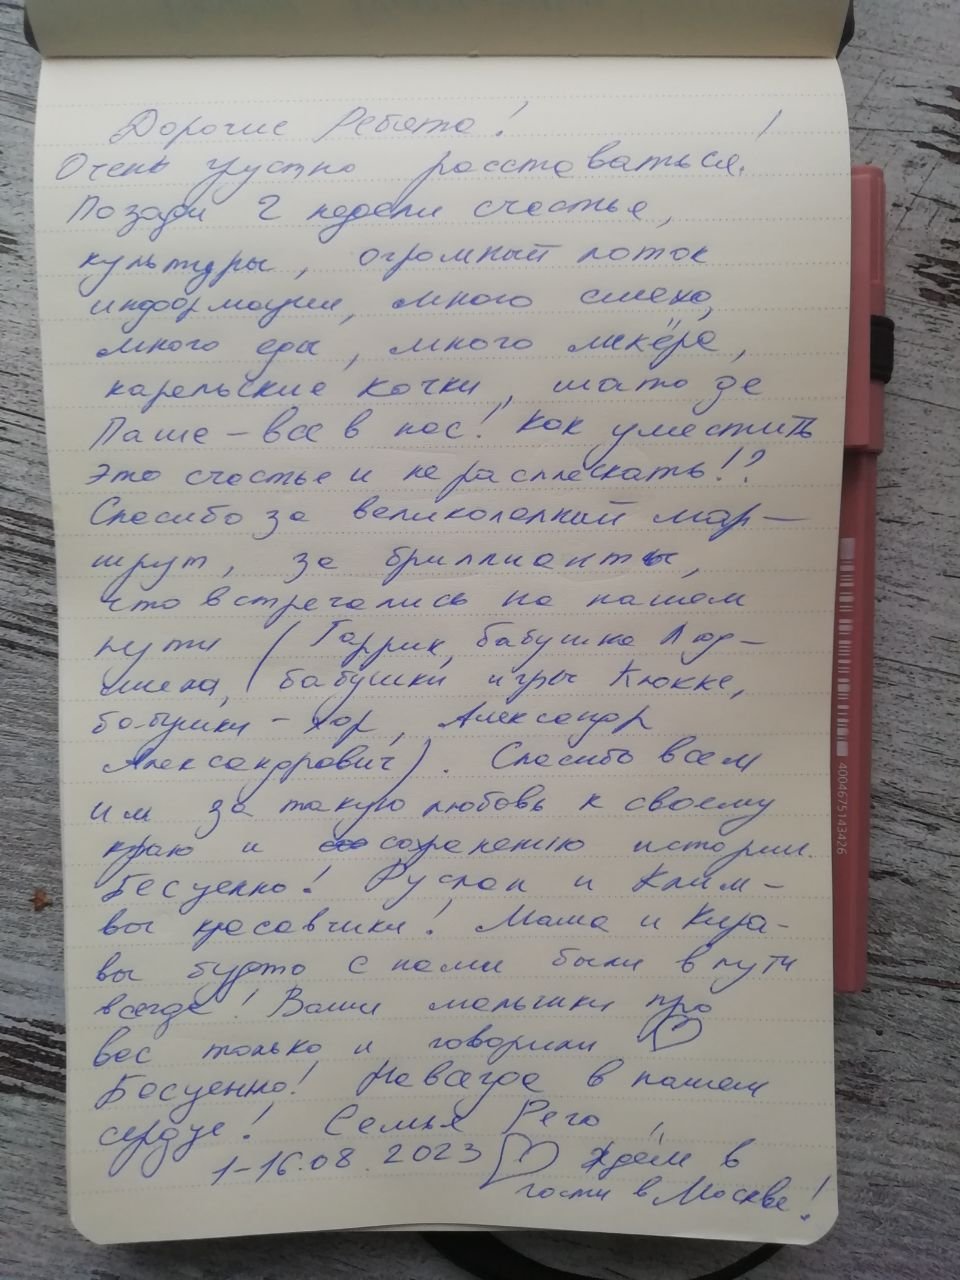 Дорогие Ребята!
Очень грустно расставаться!
Позади 2 недели счастья,
культуры, огромный поток
информации, много смеха,
много еды, много ликёра,
карельские кочки, шато де
Паше - все в нас! Как уместить
это счастье и не расплескать!?
Спасибо за великолепный мар-
шрут, за бриллианты,
что встречались на нашем
пути (Гаррик, бабушка Люд-
мила, бабушки игры Кюккя,
бабушки - хор, Александр
Александрович). Спасибо всем
им за такую любовь к своему
краю и сохранению истории.
Бесценно! Руслан и Клим -
вы красавчики! Маша и Кира -
вы будто с нами были в пути
всегда! Ваши мальчики про
вас только и говорили
Бесценно! Навсегда в нашем
сердце! Семья Рего,
1-16.08.2023 Ждём в
гости в Москве!
4004675143426